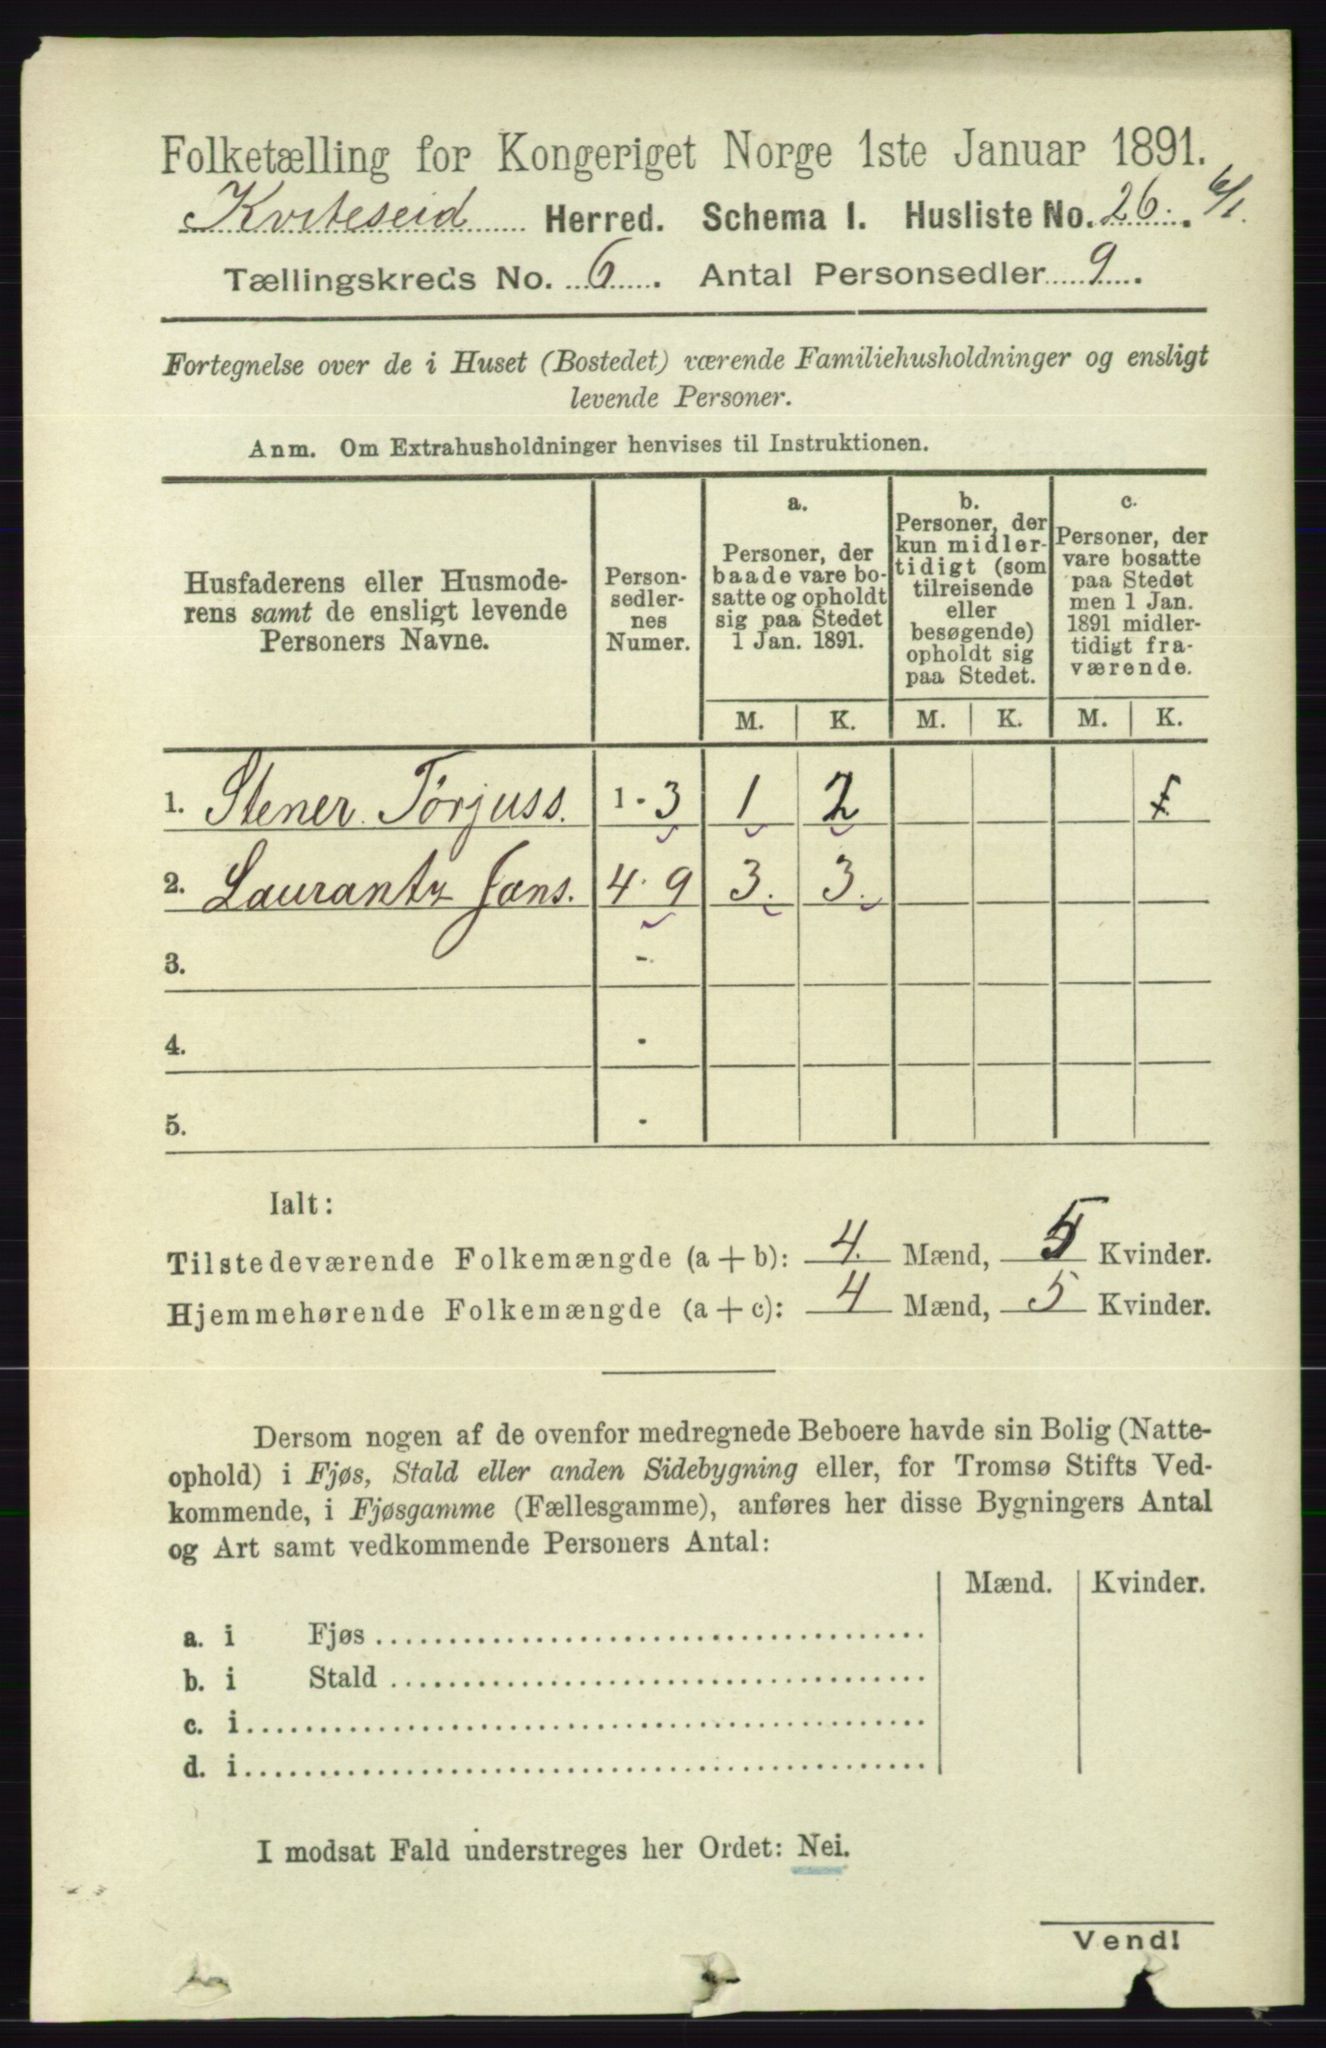 Folketælling for Kongeriget Norge 1ste Januar 1891.
Kviteseid Herred. Schema I. Husliste No. 26. 6/1.
Tællingskreds No. 6. Antal Personsedler 9.
Fortegnelse over de i Huset (Bostedet) værende Familiehusholdninger og ensligt
levende Personer.
Anm. Om Extrahusholdninger henvises til Instruktionen.
Husfaderens eller Husmode-
rens samt de ensligt levende
Personers Navne.
Person-
sedler-
nes
Numer.
a.
Personer, der
baade vare bo-
satte og opholdt
sig paa Stedet
1 Jan. 1891.
b.
Personer, der
kun midler-
tidigt (som
tilreisende
eller
besøgende)
opholdt sig
paa Stedet.
c.
Personer, der
vare bosatte
paa Stedet
men 1 Jan.
1891 midler-
tidigt fra-
værende.
M. K. M. K. M. K.
1. Stener Torjuss. 1 - 3 1 2
2. Laurantz Jans. 4 - 9 3. 3.
3. -
4. -
5. -
Ialt:
Tilstedeværende Folkemængde (a + b): 4. Mænd, 5 Kvinder.
Hjemmehørende Folkemængde (a + c): 4 Mænd, 5 Kvinder.
Dersom nogen af de ovenfor medregnede Beboere havde sin Bolig (Natte-
ophold) i Fjøs, Stald eller anden Sidebygning eller, for Tromsø Stifts Ved-
kommende, i Fjøsgamme (Fællesgamme), anføres her disse Bygningers Antal
og Art samt vedkommende Personers Antal:
Mænd. Kvinder.
a. i Fjøs
b. i Stald
c. i
d. i
I modsat Fald understreges her Ordet: Nei.
Vend!